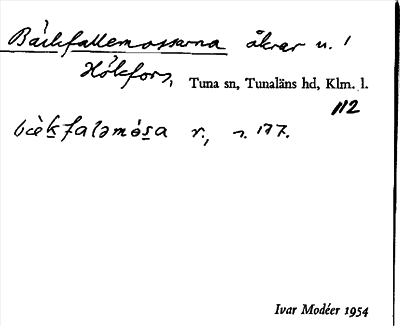 Bäckfallemossarna åkrar u. /
Hökfors, Tuna sn, Tunaläns hd, Klm. l.
112
bæ̀k̠faləmós̠a r., s. 177.
Ivar Modéer 1954